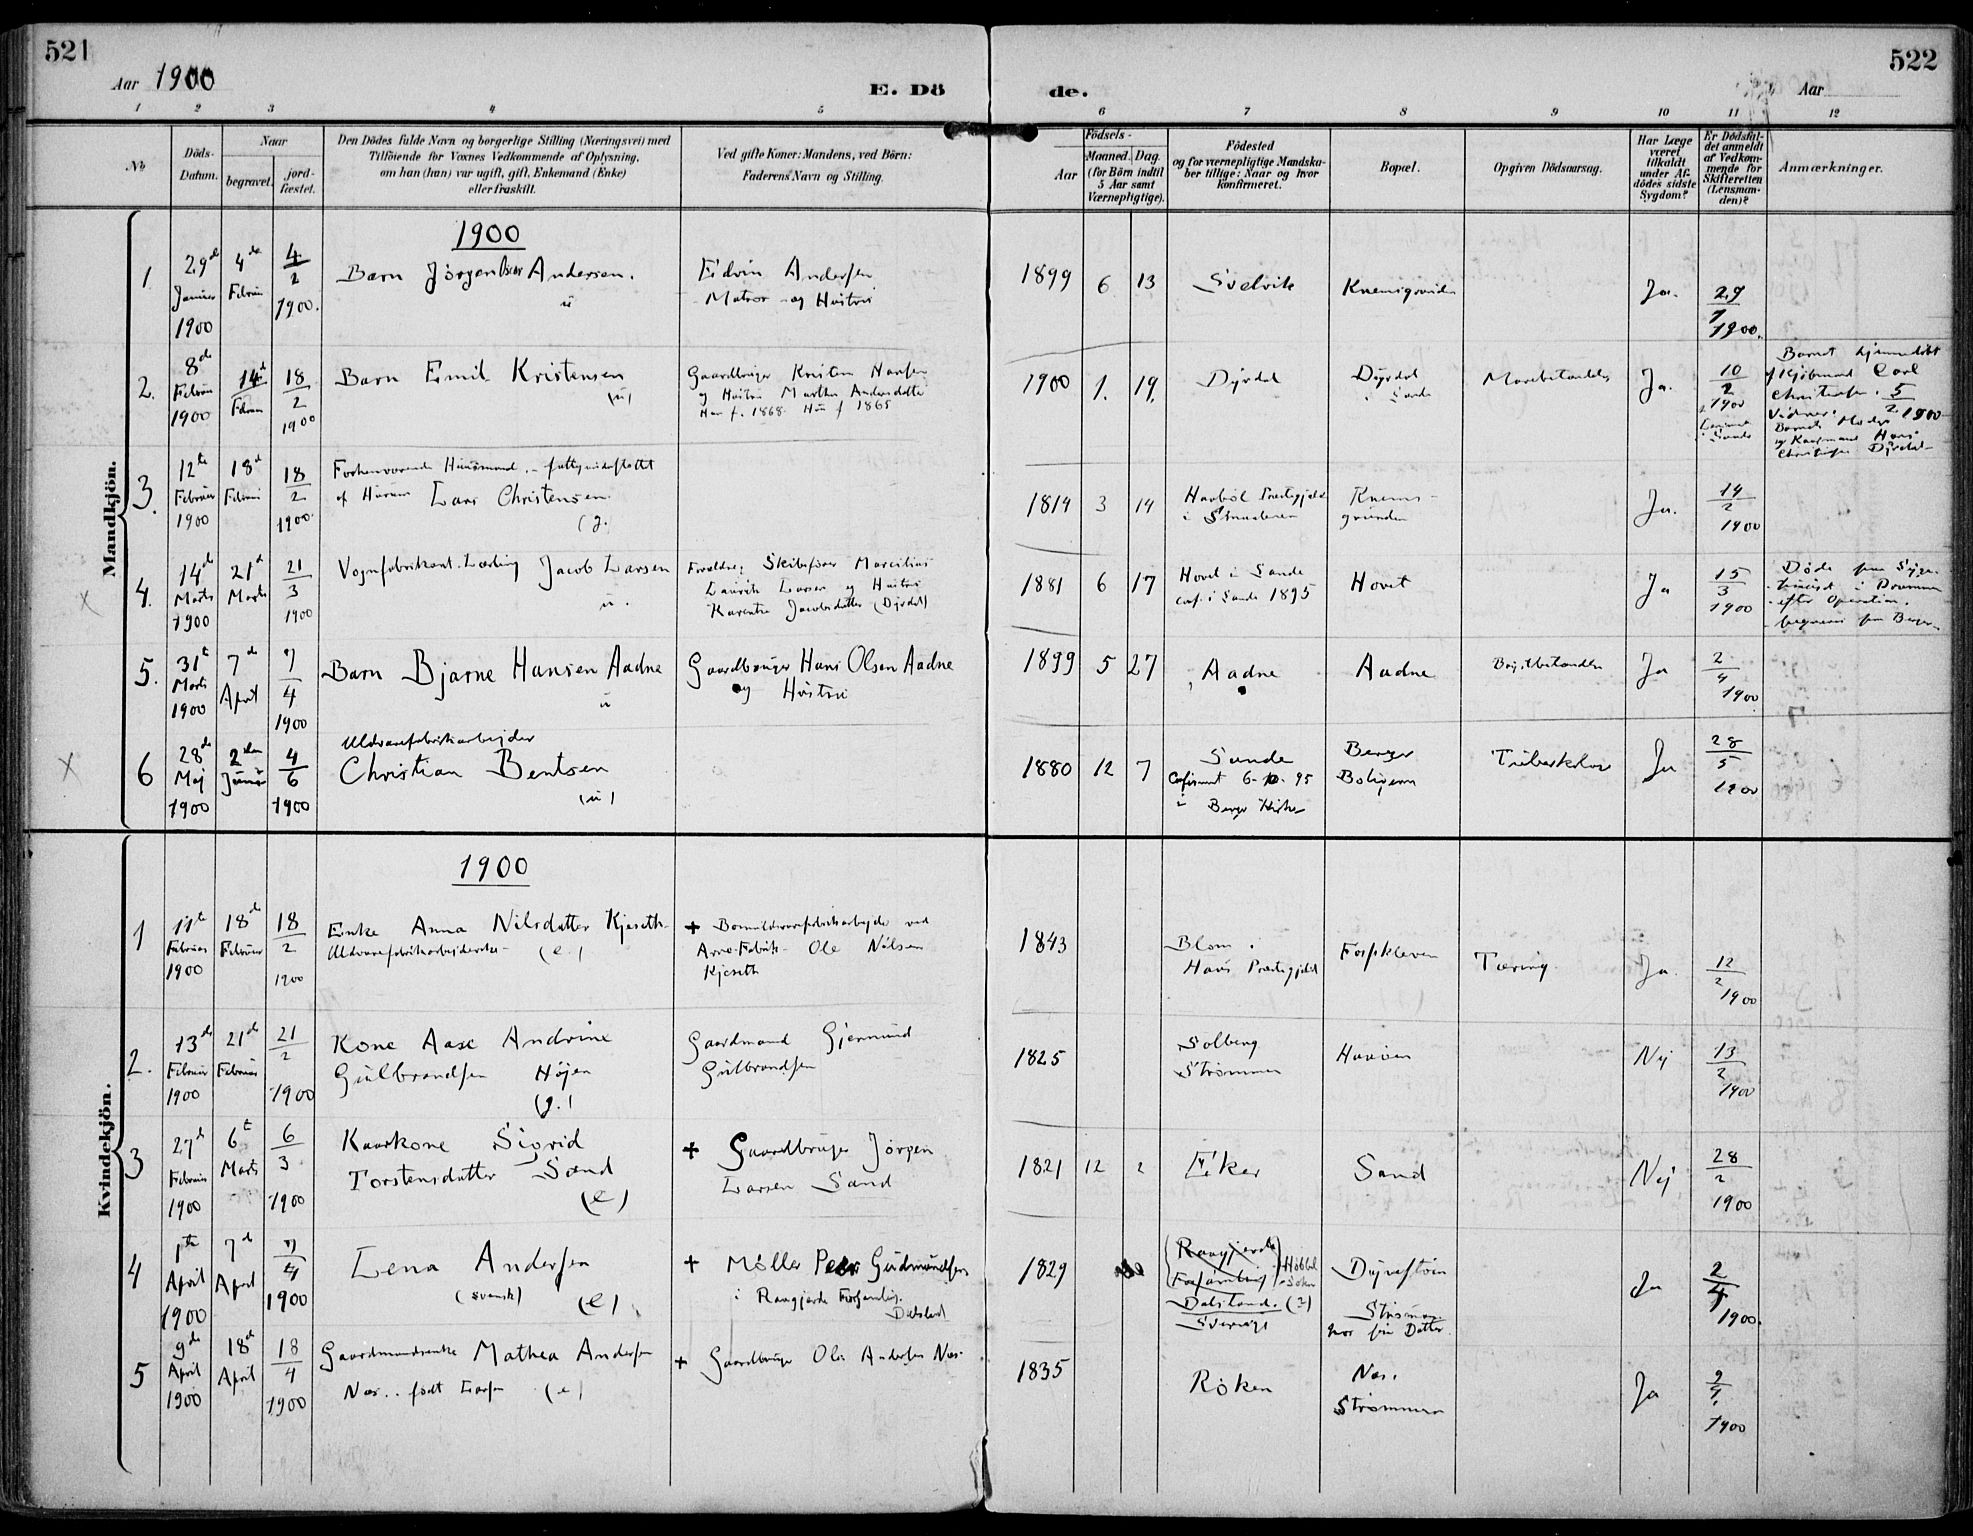 521
Aar 1900
E. Dö
de.
Aar
522
1 2 3 4 5 6 7 8 9 10 11 12
No
Döds-Datum.
Naar
begravet.
jord-fæstet.
Den Dödes fulde Navn og borgerlige Stilling (Næringsvei) med
Tilföiende for Voxnes Vedkommende af Oplysning,
om han (hun) var ugift, gift, Enkemand (Enke)
eller fraskilt.
Ved gifte Koner: Mandens, ved Börn:
Faderens Navn og Stilling.
Födsels-
Aar
Maaned. Dag.
(for Börn indtil
5 Aar samt
Værnepligtige).
Födested
og for værnepligtige Mandska-
ber tillige: Naar og hvor
konfirmeret.
Bopæl.
Opgiven Dödsaarsag.
Har Læge
været
tilkaldt
under Af-
dödes sidste
Sygdom?
Er Dödsfal-
det anmeldt
af Vedkom-
mende for
Skifteretten
(Lensman-
den)?
Anmærkninger.
Mandkjön.
1900
1 29de Januar 1900 4de Februar 4/2 1900. Barn Jørgen Oscar Andersen. u
Edvin Andersen
Matros og Hustru
1899 6 13 Svelvik Ja. 29/1 1900.
2. 8de Februar 1900 14de Februar 18/2 1900 Barn Emil Kristensen (u)
Gaardbruger Kristen Hansen
og Hustru Marthe Andersdatter
Han f. 1868. Hun f 1865
1900 1. 19. Dyrdal Dyrdal i Sande Ja. 10/2 1900
Barnet hjemmedøbt
af Kjøbmand Carl
Christensen. 5/2 1900
Vidner:
Barnets Moder
og Hans
Christensen Dyrdal
3. 12te Februar 1900 18de Februar 18/2 1900. Forhenværende Huusmand
af Hurum Lars Christensen (g.
1814 3 14 Ja. 14/2 1900
4. 14de Marts 1900 21de Marts 21/3 1900 Vognfabrikant-Lærling Jacob Larsen u.
Forældre: Skibsfører
Laurits Larsen og Hustru
Karentse Jacobsdatter (Dyrdal)
1881 6 17 Hovet i Sande
conf. i Sande 1895
Hovet Ja 15/3 1900
Døde paa Syge-
i Drammen
efter Operation.
begraves paa Berger
5. 31te Marts 1900 7de April 7/4 1900 Barn Bjarne Hansen Aadne u
Gaardbruger Hans Olsen Aadne
og Hustru
1899 5 27 Aadne Aadne Ja 2/4 1900
6 28de Maj 1900 2den Juni 4/6 1900 Uldvarefabrikarbejder
Christian Bentsen (u)
1880 12 7 Sande
i Berger Kirke
Berger
Tuberkulose Ja 28/5 1900
Kvindekjön.
1900
1 11te Februar 1900 18de Februar 18/2 1900 Enke Anna Nilsdatter Kjeseth
Uldvarefabrikarbejderske (e.)
+ Bomuldsvarefabrikarbejder ved
Arne-Fabrik Ole Nilsen
Kjeseth
1843 Blom.
Hans Præstegjeld
Fossekleven Tæring. Ja. 12/2 1900
2. 13de Februar 1900 21de Februar 21/2 1900 Kone Aase Andrine
Gulbrandsen Højen
(g.)
Gaardmand Gjermund
Gulbrandsen
1825 Solberg
Strømmen
Nej 13/2 1900
3 27de Februar 1900 6te Marts 6/3 1900 Kaarkone Sigrid
Torstensdatter Sand
(e)
+ Gaardbruger Jørgen
Larsen Sand
1821 12 2 Eker Sand Nej 28/2 1900
4 1ste April 1900 7de April 7/4 1900 Lena Andersen
(svensk) (e)
+ Møller Peter Gudmundsen
i Raagjerde Forsamling.
Dalsland
1829 Raagjerde
Forsamling
Dalsland. (?)
Sverige
Strømmen
hos sin Datter
Ja 2/4 1900.
5 9de April 1900 18de April 18/4 1900 Gaardmandsenke Mathea Andersen
Næs.. født Larsen (e)
+ Gaardbruger Ole Andersen Næs.
1835 Røken Næs.
Strømmen
Ja 9/4 1900